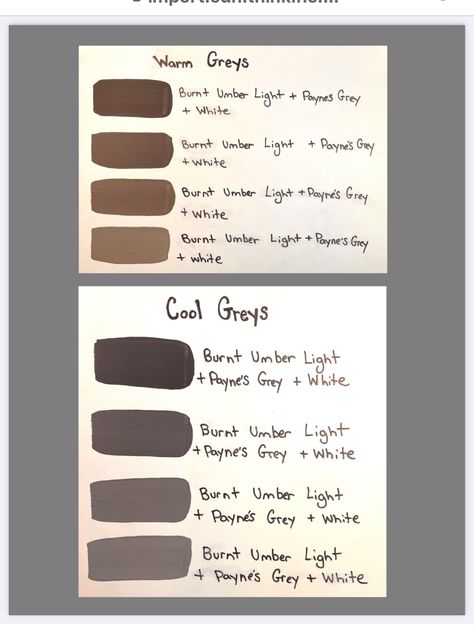 Warm Greys
Burnt Umber Light + Paynes Grey
+ White
Burnt Umber Light + Payne's Grey
+ White
Burnt Umber Light + Payne's Grey
+ White
Burnt Umber Light + Payne's Grey
+ white
Cool Greys
Burnt Umber Light
+ Payne's Grey + White
Burnt Umber Light
+ Payne's Grey + White
Burnt Umber Light
+ Payne's Grey + White
Burnt Umber Light
+ Payne's Grey + White